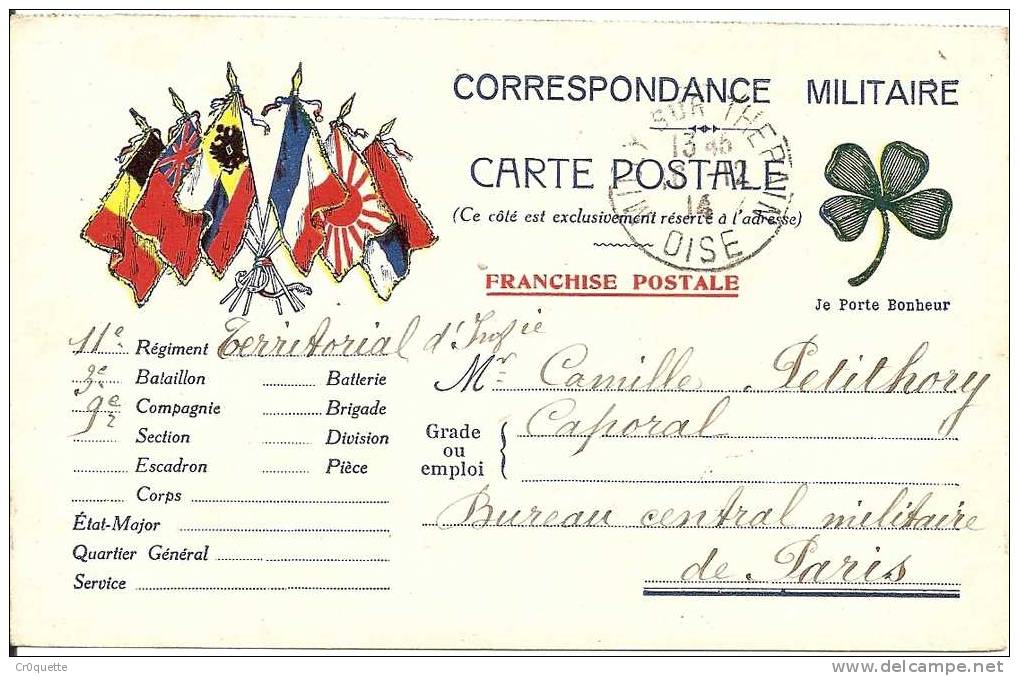 CORRESPONDANCE MILITAIRE
CARTE POSTALE
(Ce côté est exclusivement réservé à l'adresse)
FRANCHISE POSTALE
SUR THERAIN
13 45
12
14
OISE
Je Porte Bonheur
11e Régiment Territorial d'Infie
Bataillon Batterie
9e Compagnie Brigade
Section Division
Escadron Pièce
Corps
État-Major
Quartier Général
Service
Mr Camille Petithory
Grade ou emploi { Caporal
Bureau central militaire
de Paris
Cr0quette
www.delcampe.net